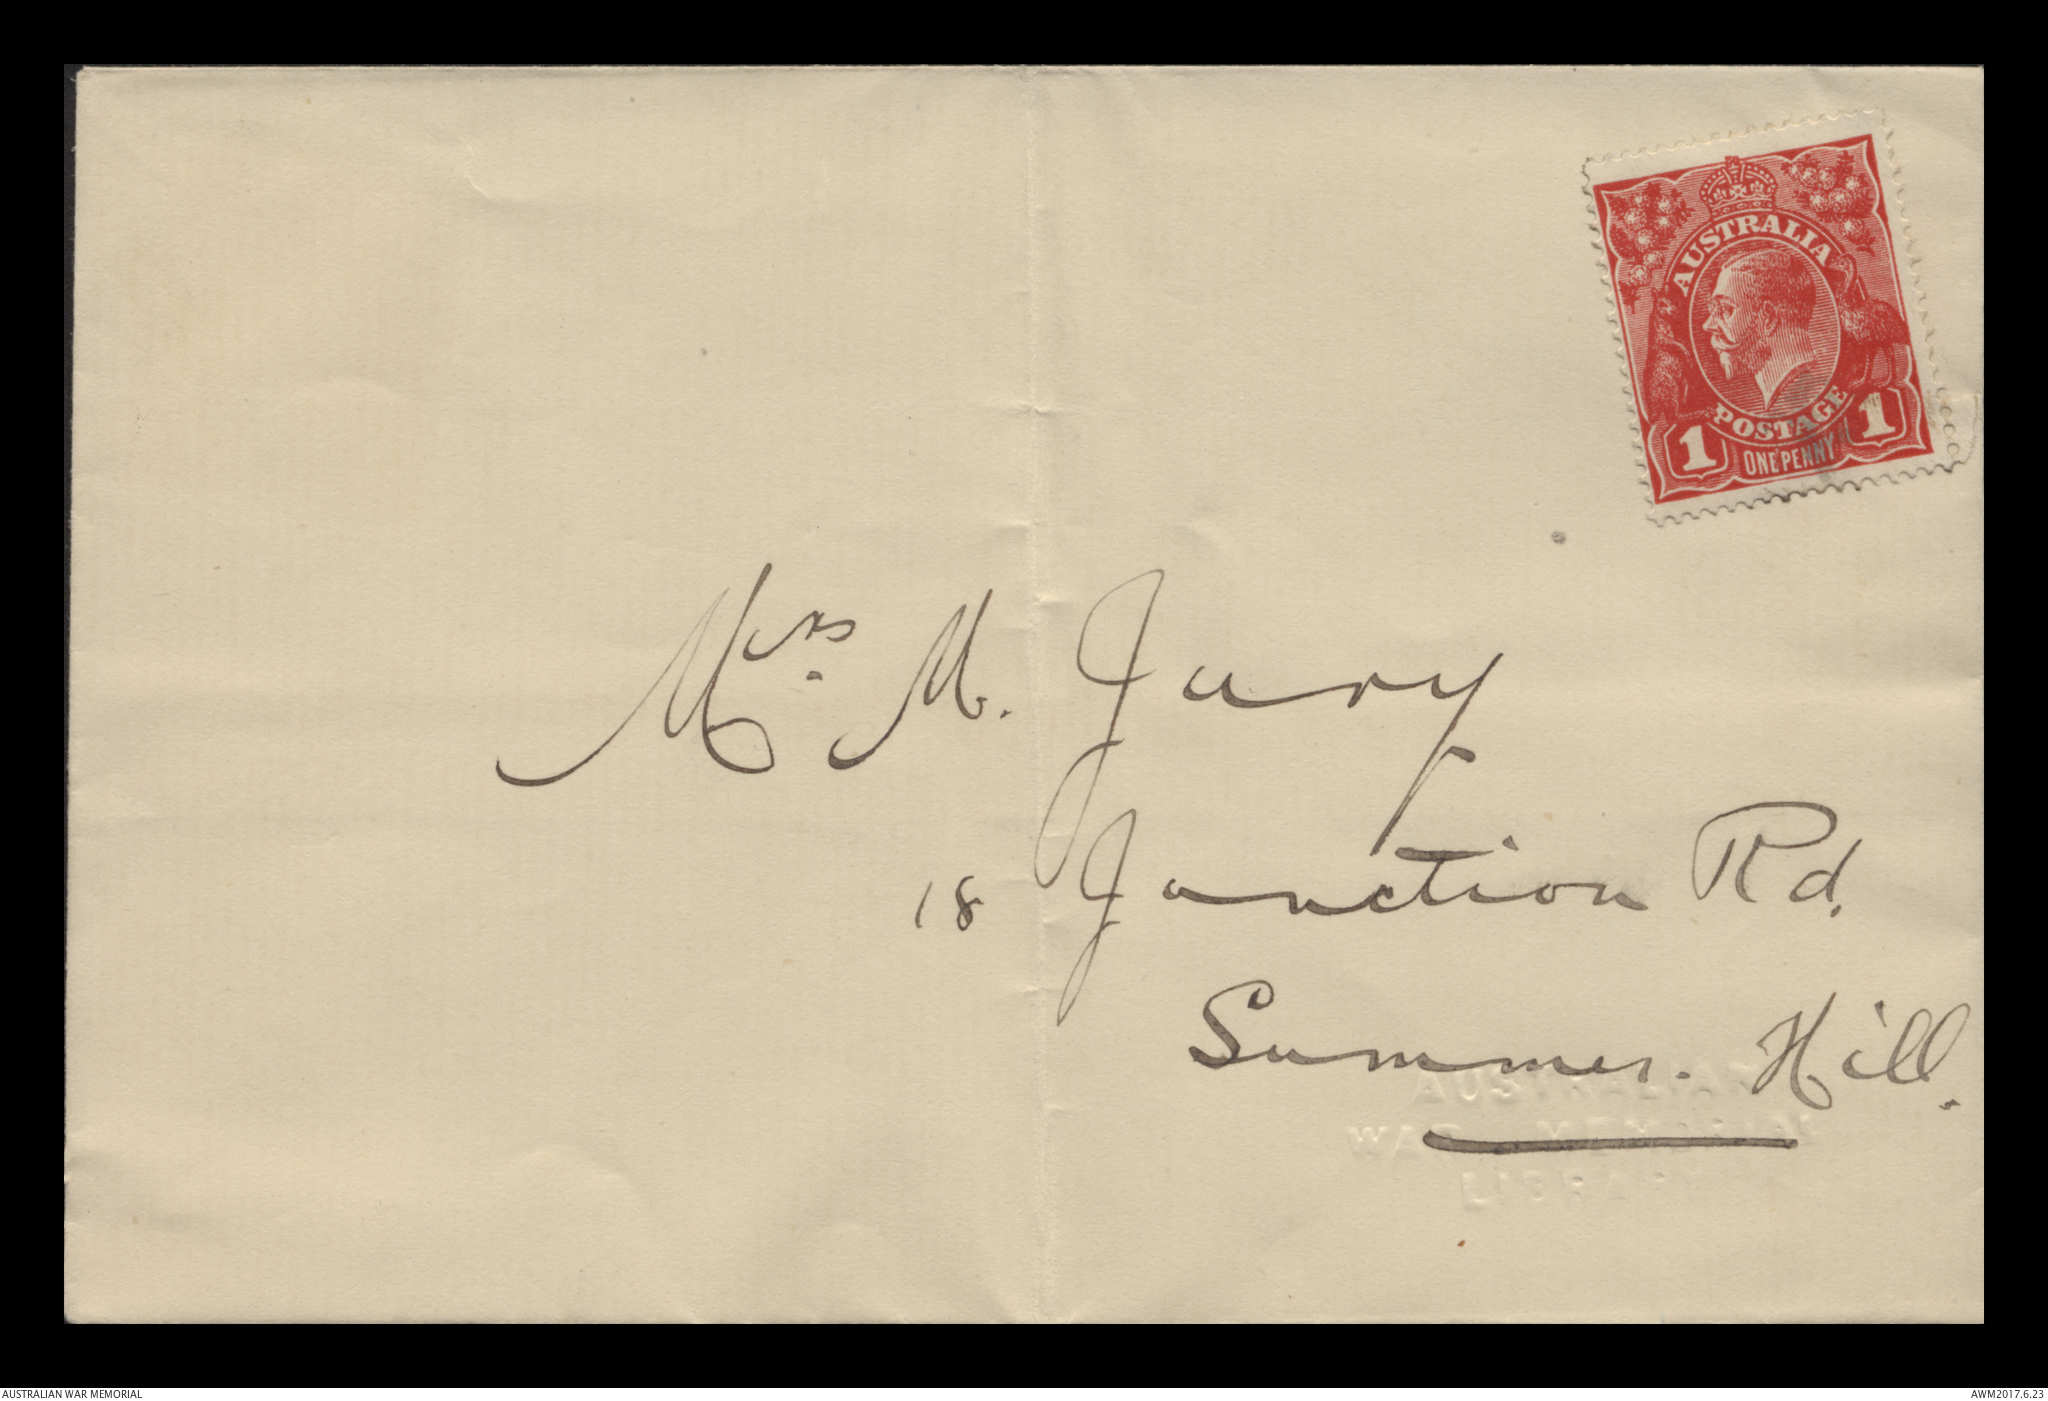 AUSTRALIA
POSTAGE
1 ONE PENNY 1
Mrs. M. Jury
18 Junction Rd.
Summer. Hill.
AUSTRALIAN
WAR MEMORIAL
LIBRARY
AUSTRALIAN WAR MEMORIAL
AWM2017.6.23